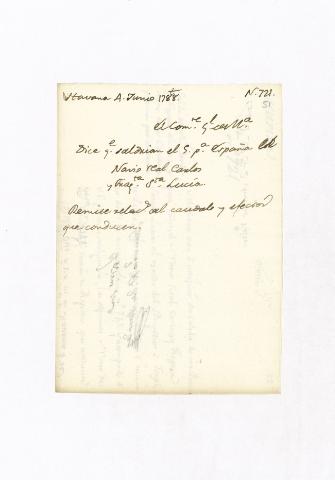 Havana 4. Junio 1788. N. 721.
51
El Com.te G.l de M.a
Dice q.e saldrian el 5 p.a España el
Navio real Carlos
y frag.ta S.ta Lucia.
Remite relac.n del caudal y efectos
que conducen.